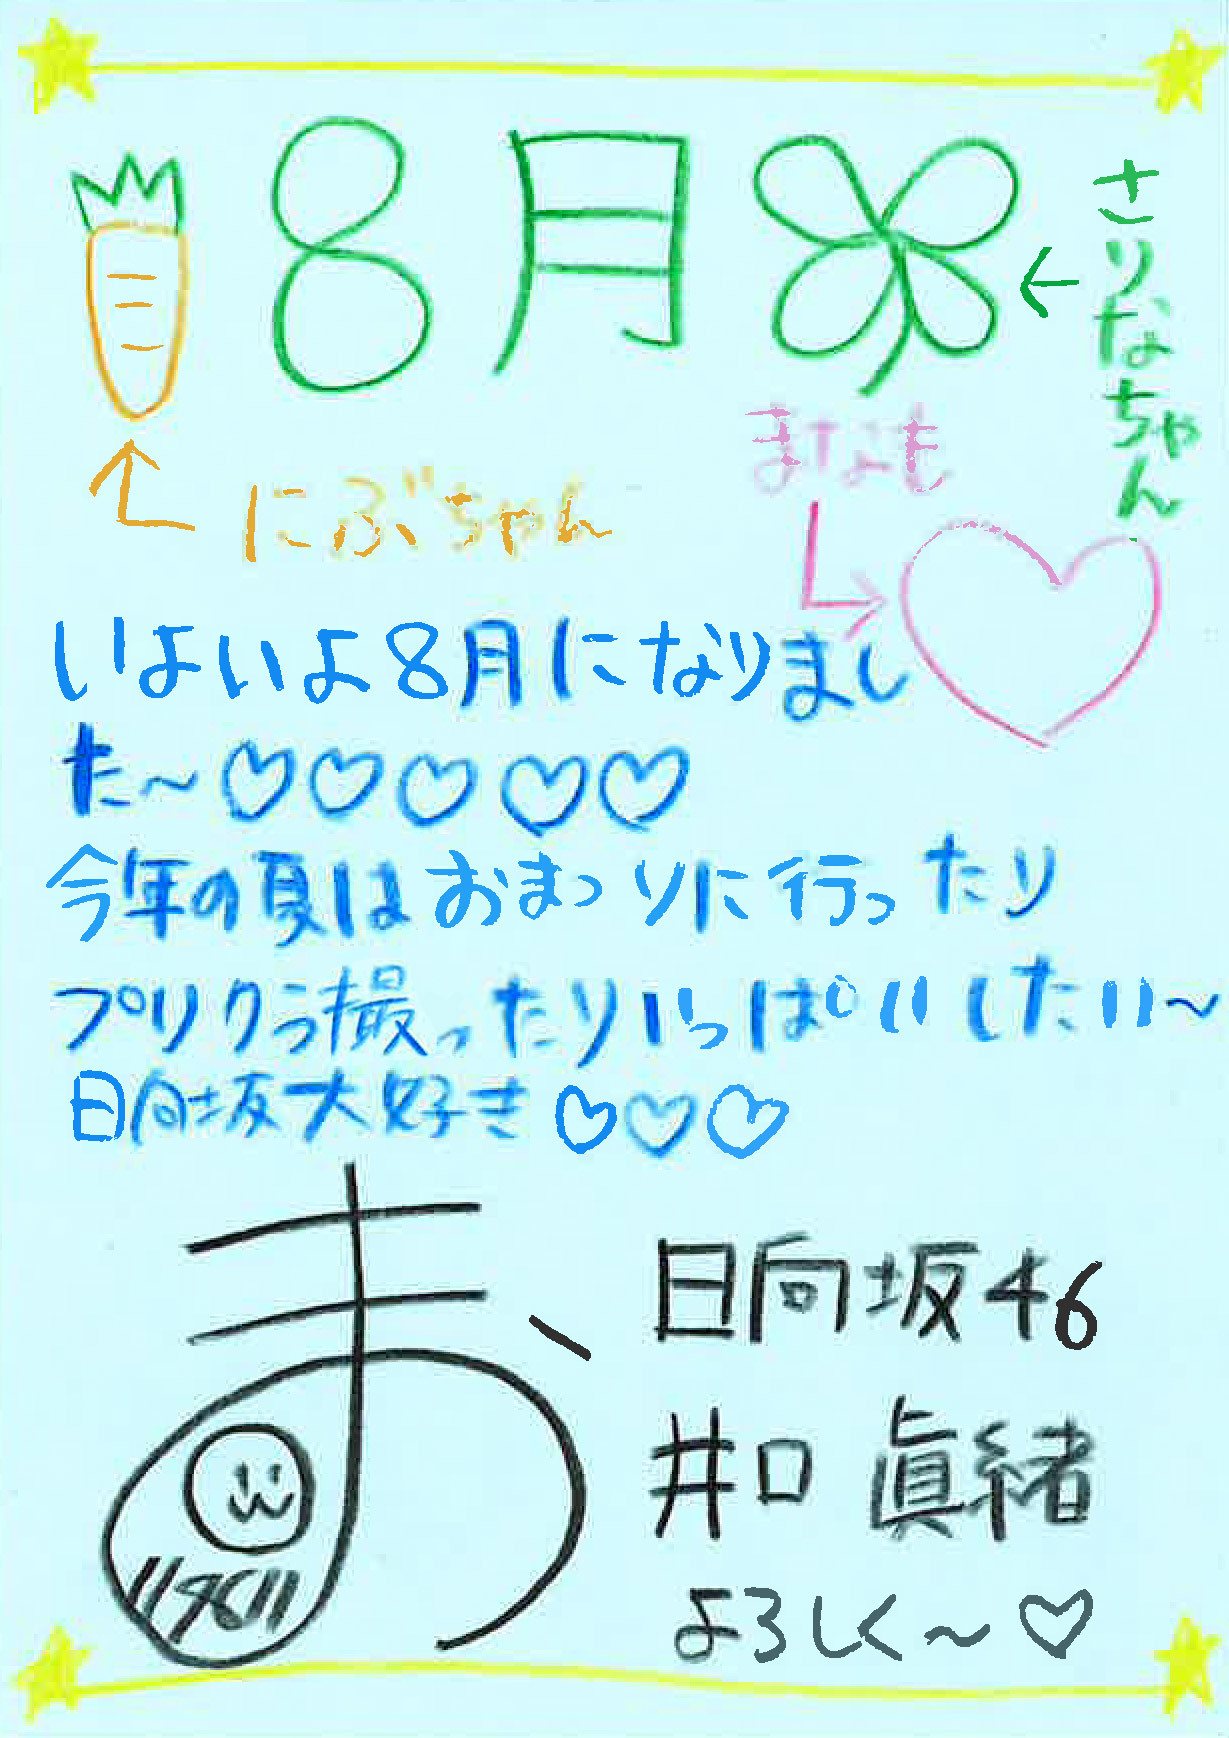 8月
さりなちゃん
にぶちゃん
まなも
いよいよ8月になりまし
た〜♡♡♡♡♡
今年の夏はおまつりに行ったり
プリクラ撮ったりいっぱいしたい〜
日向坂大好き♡♡♡
日向坂46
井口 眞緒
よろしく〜♡